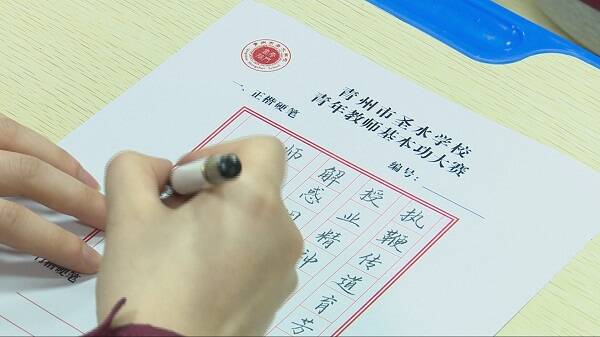 青州市圣水学校
青年教师基本功大赛
编号:
一、正楷硬笔
执鞭传道育芳
授业精
解惑
师
楷硬笔